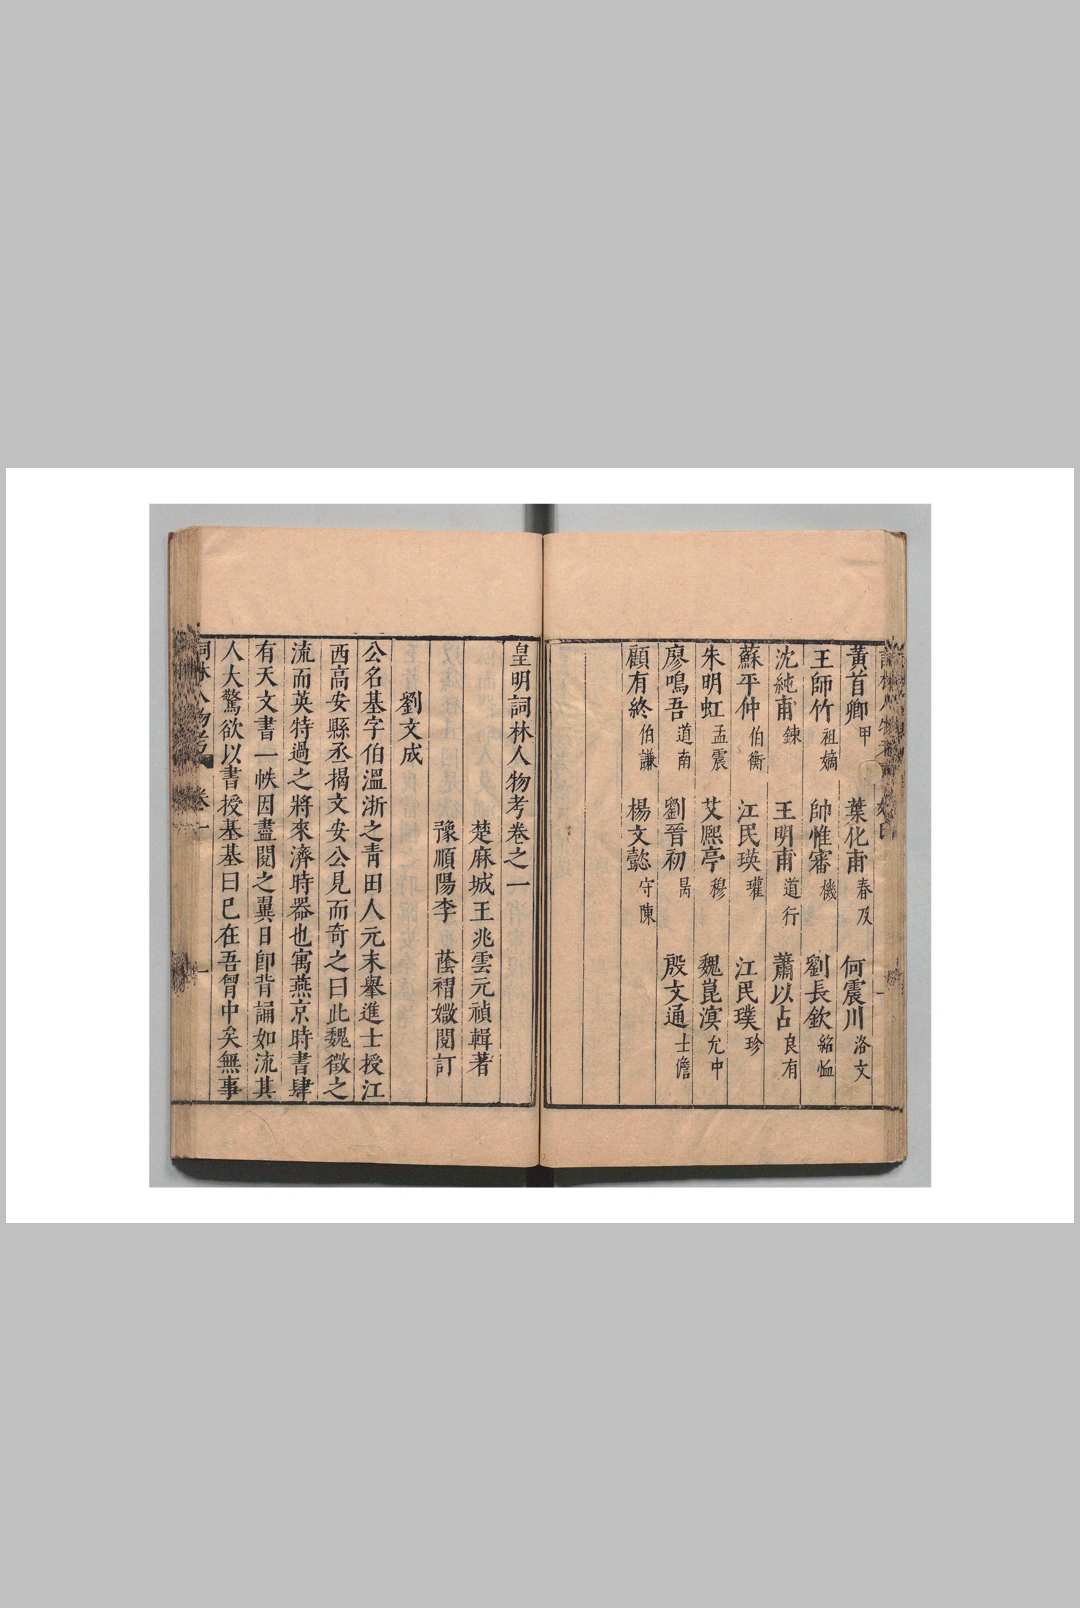 黃首卿 甲 葉化甫 春及 何震川 洛文
王師竹 祖嫡 帥惟審 機 劉長欽 紹恤
沈純甫 鍊 王明甫 道行 蕭以占 良有
蘇平仲 伯衡 江民瑛 瓘 江民璞 珍
朱明虹 孟震 艾熈亭 穆 魏崑溟 允中
廖鳴吾 道南 劉晉初 昺 殷文通 士儋
顧有終 伯謙 楊文懿 守陳
皇明詞林人物考卷之一
楚麻城王兆雲元禎輯著
豫順陽李 蔭襲媺閱訂
劉文成
公名基字伯溫浙之青田人元末舉進士授江
西高安縣丞揭文安公見而奇之曰此魏徵之
流而英特過之將來濟時器也寓燕京時書肆
有天文書一帙因盡閱之翼日卽背誦如流其
人大驚欲以書授基基曰已在吾胷中矣無事
詞林人物考 卷一 一